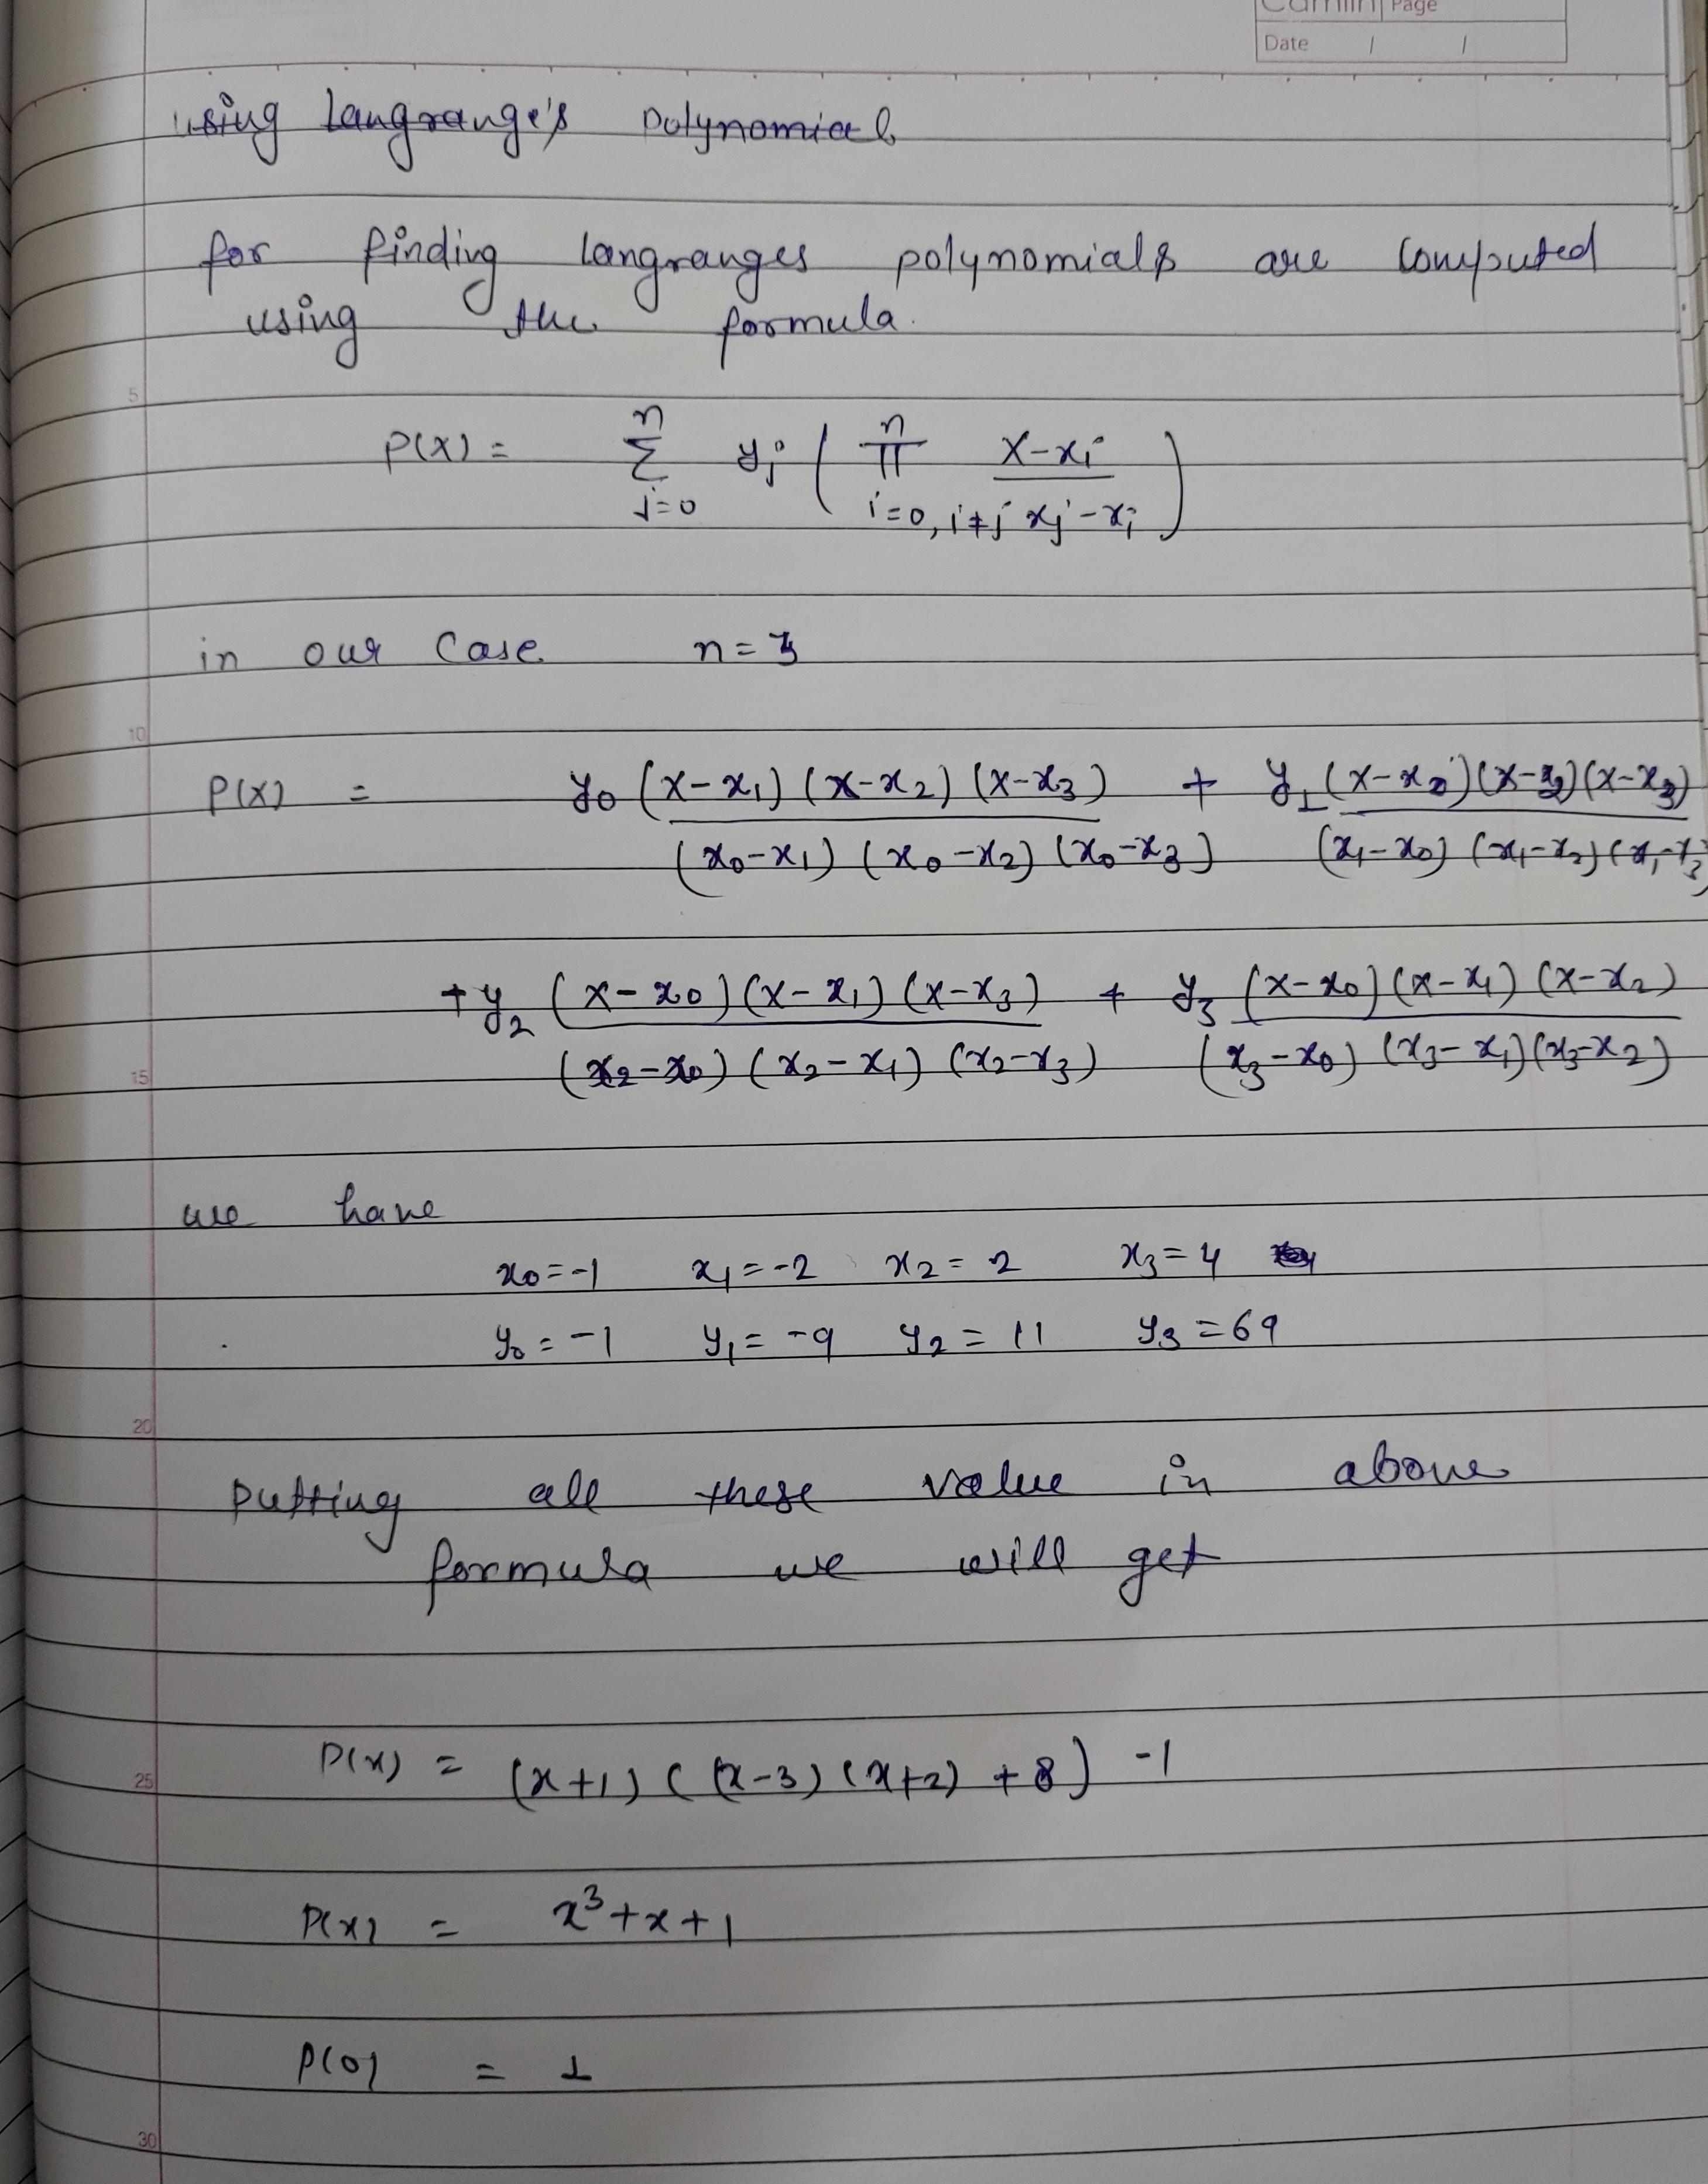 Camlin Page
Date / /
using Langrange's polynomial
for finding langranges polynomials are computed
using the formula.
5
P(X) = n Σ j=0 yj ( n π i=0, i≠j X-xi / xj-xi )
in our case n=3
10
P(X) = y0 (X-x1) (X-x2) (X-x3) / (x0-x1) (x0-x2) (x0-x3) + y1 (X-x0) (X-x2) (X-x3) / (x1-x0) (x1-x2) (x1-x3)
+ y2 (X-x0) (X-x1) (X-x3) / (x2-x0) (x2-x1) (x2-x3) + y3 (X-x0) (X-x1) (X-x2) / (x3-x0) (x3-x1) (x3-x2)
15
we have
x0=-1 x1=-2 x2=2 x3=4
y0=-1 y1=-9 y2=11 y3=69
20
putting all these value in above
formula we will get
25
P(x) = (x+1) ( (x-3) (x+2) +8) -1
P(x) = x³+x+1
P(0) = 1
30